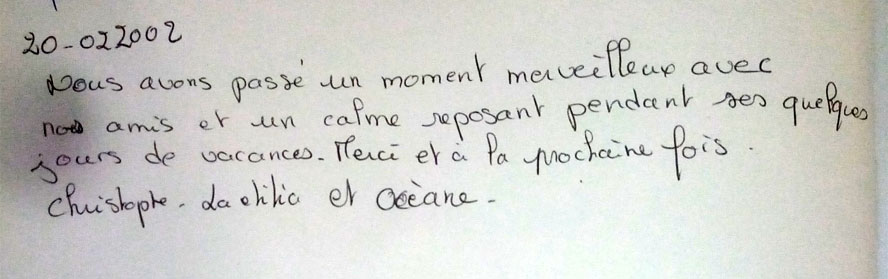 20-022002
Nous avons passé un moment merveilleux avec
nos amis et un calme reposant pendant ses quelques
jours de vacances. Merci et à la prochaine fois.
Christophe. Laetitia et Océane.